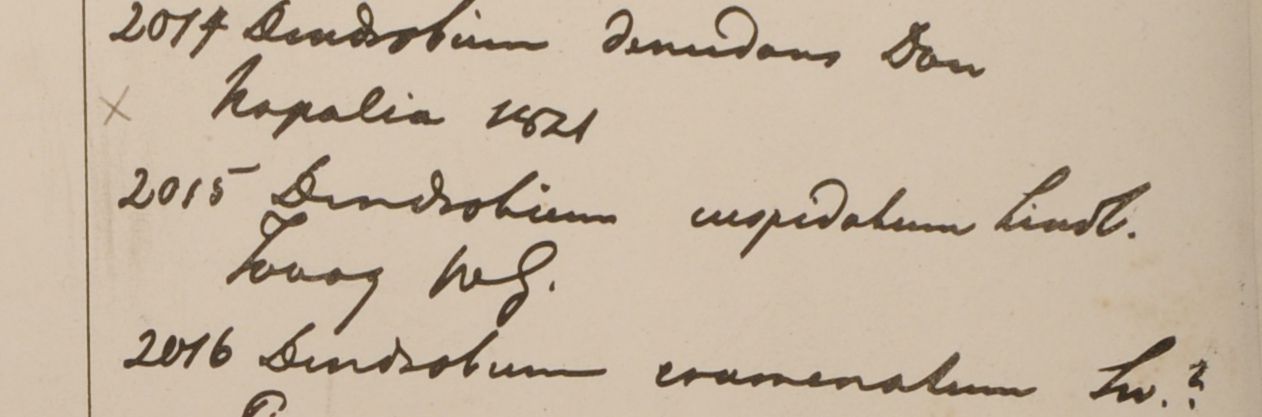 2014 Dendrobium denudans Don
Napalia 1821
2015 Dendrobium cuspidatum Lindl.
Tavoy W.G.
2016 Dendrobium crumenatum Sw.?